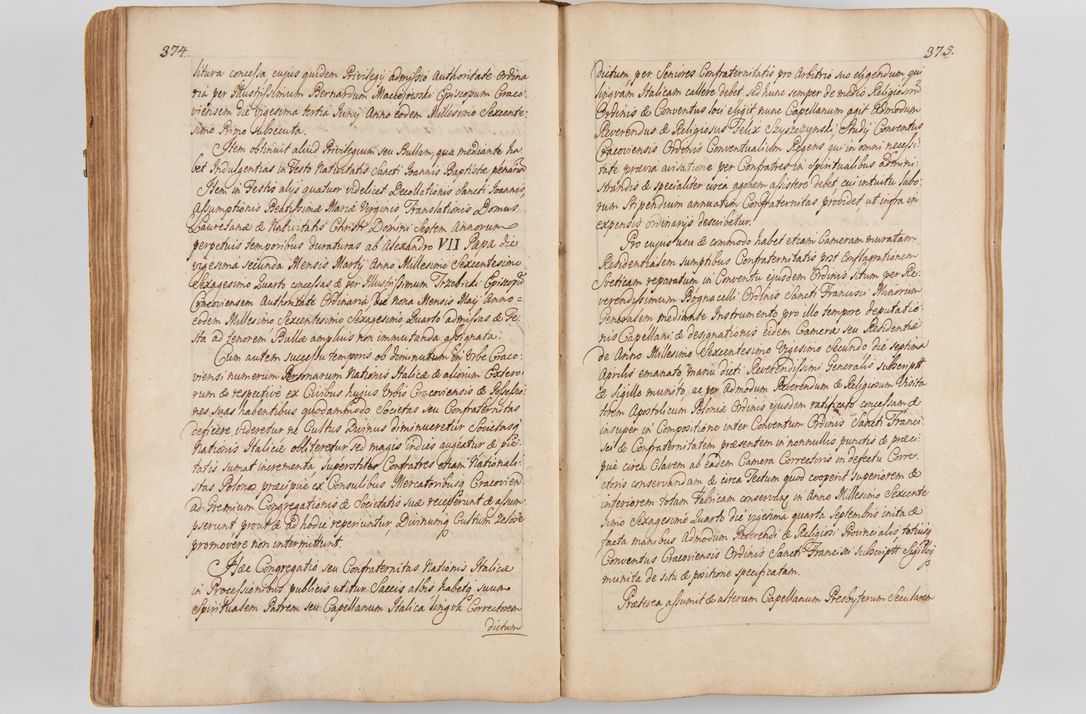 374.
litura concessa cujus quidem Privilegij admissio Authoritate Ordina
ria per Illustrissimum Bernardum Macieiowski Episcopum Craco-
viensem die vigesima tertia Junij Anno eodem Millesimo Sexcente-
simo Primo subsecuta.
Item obtinuit aliud Privilegium seu Bullam, qua mediante ha-
bet Indulgentias in Festo Nativitatis Sancti Joannis Baptistæ plenariā
Item in Festis alijs quatuor videlicet Decollationis Sancti Joannis,
Assumptionis Beatissimæ Mariæ Virginis Translationis Domus
Lauretanæ & Nativitatis Christi Domini Septem Annorum
perpetuis temporibus duraturas ab Alexandro VII Papa die
vigesima secunda Mensis Martij Anno Millesimo Sexcentesimo
Sexagesimo Quarto concessas & per Illustrissimum Trzebicki Episcopū
Cracoviensem Authoritate Ordinaria die nona Mensis Maij Anno
eodem Millesimo Sexcentesimo Sexagesimo Quarto admissas & Fe-
sta ad tenorem Bullæ amplius non immutanda assignata.
Cum autem successu temporis ob diminutum in Urbe Craco-
viensi numerum Personarum Nationis Italicæ & aliorum Extero-
rum & respective ex Civibus hujus Urbis Cracoviensis & Possessio-
nes suas habentibus quodammodo Societas seu Confraternitas
deficere videretur ne Cultus Divinus diminueretur Societasq
Nationis Italicæ obliteretur sed magis indies augeatur & pie-
tatis sumat incrementa Superstites Confratres etiam Nationali-
stas Polonos præcipue ex Consulibus Mercatoribusq Cracovien
ad Gremium Congregationis & Societatis suæ receperunt & assum-
pserunt prout & ad hodie reperiuntur, Divinumq Cultum zelose
promovere non intermittunt.
Hæc Congregatio seu Confraternitas Nationis Italicæ
in Processionibus publicis utitur Saccis albis habetq suum
Spiritualem Patrem seu Capellanum Italica lingva Correctorem
dictum
375.
dictum per Seniores Confraternitatis pro Arbitrio suo eligendum, qui
lingvam Italicam callere debet, sed hunc semper de medio Religiosorū
Ordinis & Conventus loci eligit, nunc Capellanum agit Admodum
Reverendus & Religiosus Felix Szyszczynski Studij Conventus
Cracoviensis Ordinis Conventualium Regens qui in omni necessi-
tate prævia avisatione per Confratres in spiritualibus admini-
strandis & specialiter circa agonem assistere debet, cui intuitu labo-
rum Stipendium annuatim Confraternitas providet, ut infra in
expensis ordinarijs describetur.
Pro cujus usu & commodo habet etiam Cameram muratam,
Residentialem sumptibus Confraternitatis post conflagrationem
Sveticam reparatam in Conventu ejusdem Ordinis sitam per Re-
verendissimum Bognacelli Ordinis Sancti Francisci Minorum
Generalem mediante Instrumento pro illo tempore deputatio-
nis Capellani & designationis eidem Cameræ seu Residentiæ
de Anno Millesimo Sexcentesimo Vigesimo Secundo die septima
Aprilis emanato manu dicti Reverendissimi Generalis subscripto
& sigillo munito, ac per Admodum Reverendum & Religiosum Visita-
torem Apostolicum Poloniæ Ordinis ejusdem ratificato concessam &
insuper in Compositione inter Conventum Ordinis Sancti Franci-
sci & Confraternitatem præsentem in nonnullis punctis & præci-
pue circa Clavem ab eadem Camera Correctoris in defectu Corre-
ctoris conservandam & circa Tectum quod cooperit superiorem &
inferiorem totam Fabricam conservdaq in Anno Millesimo Sexcente-
simo Sexagesimo Quarto die vigesima quarta Septembris inita &
facta manibus Admodum Reverendi & Religiosi Provincialis totiusq
Conventus Cracoviensis Ordinis Sancti Francisci subscript Sigilloq
munita de situ & positione specificatam.
Præterea assumit & alterum Capellanum Presbyterum Sæcularem